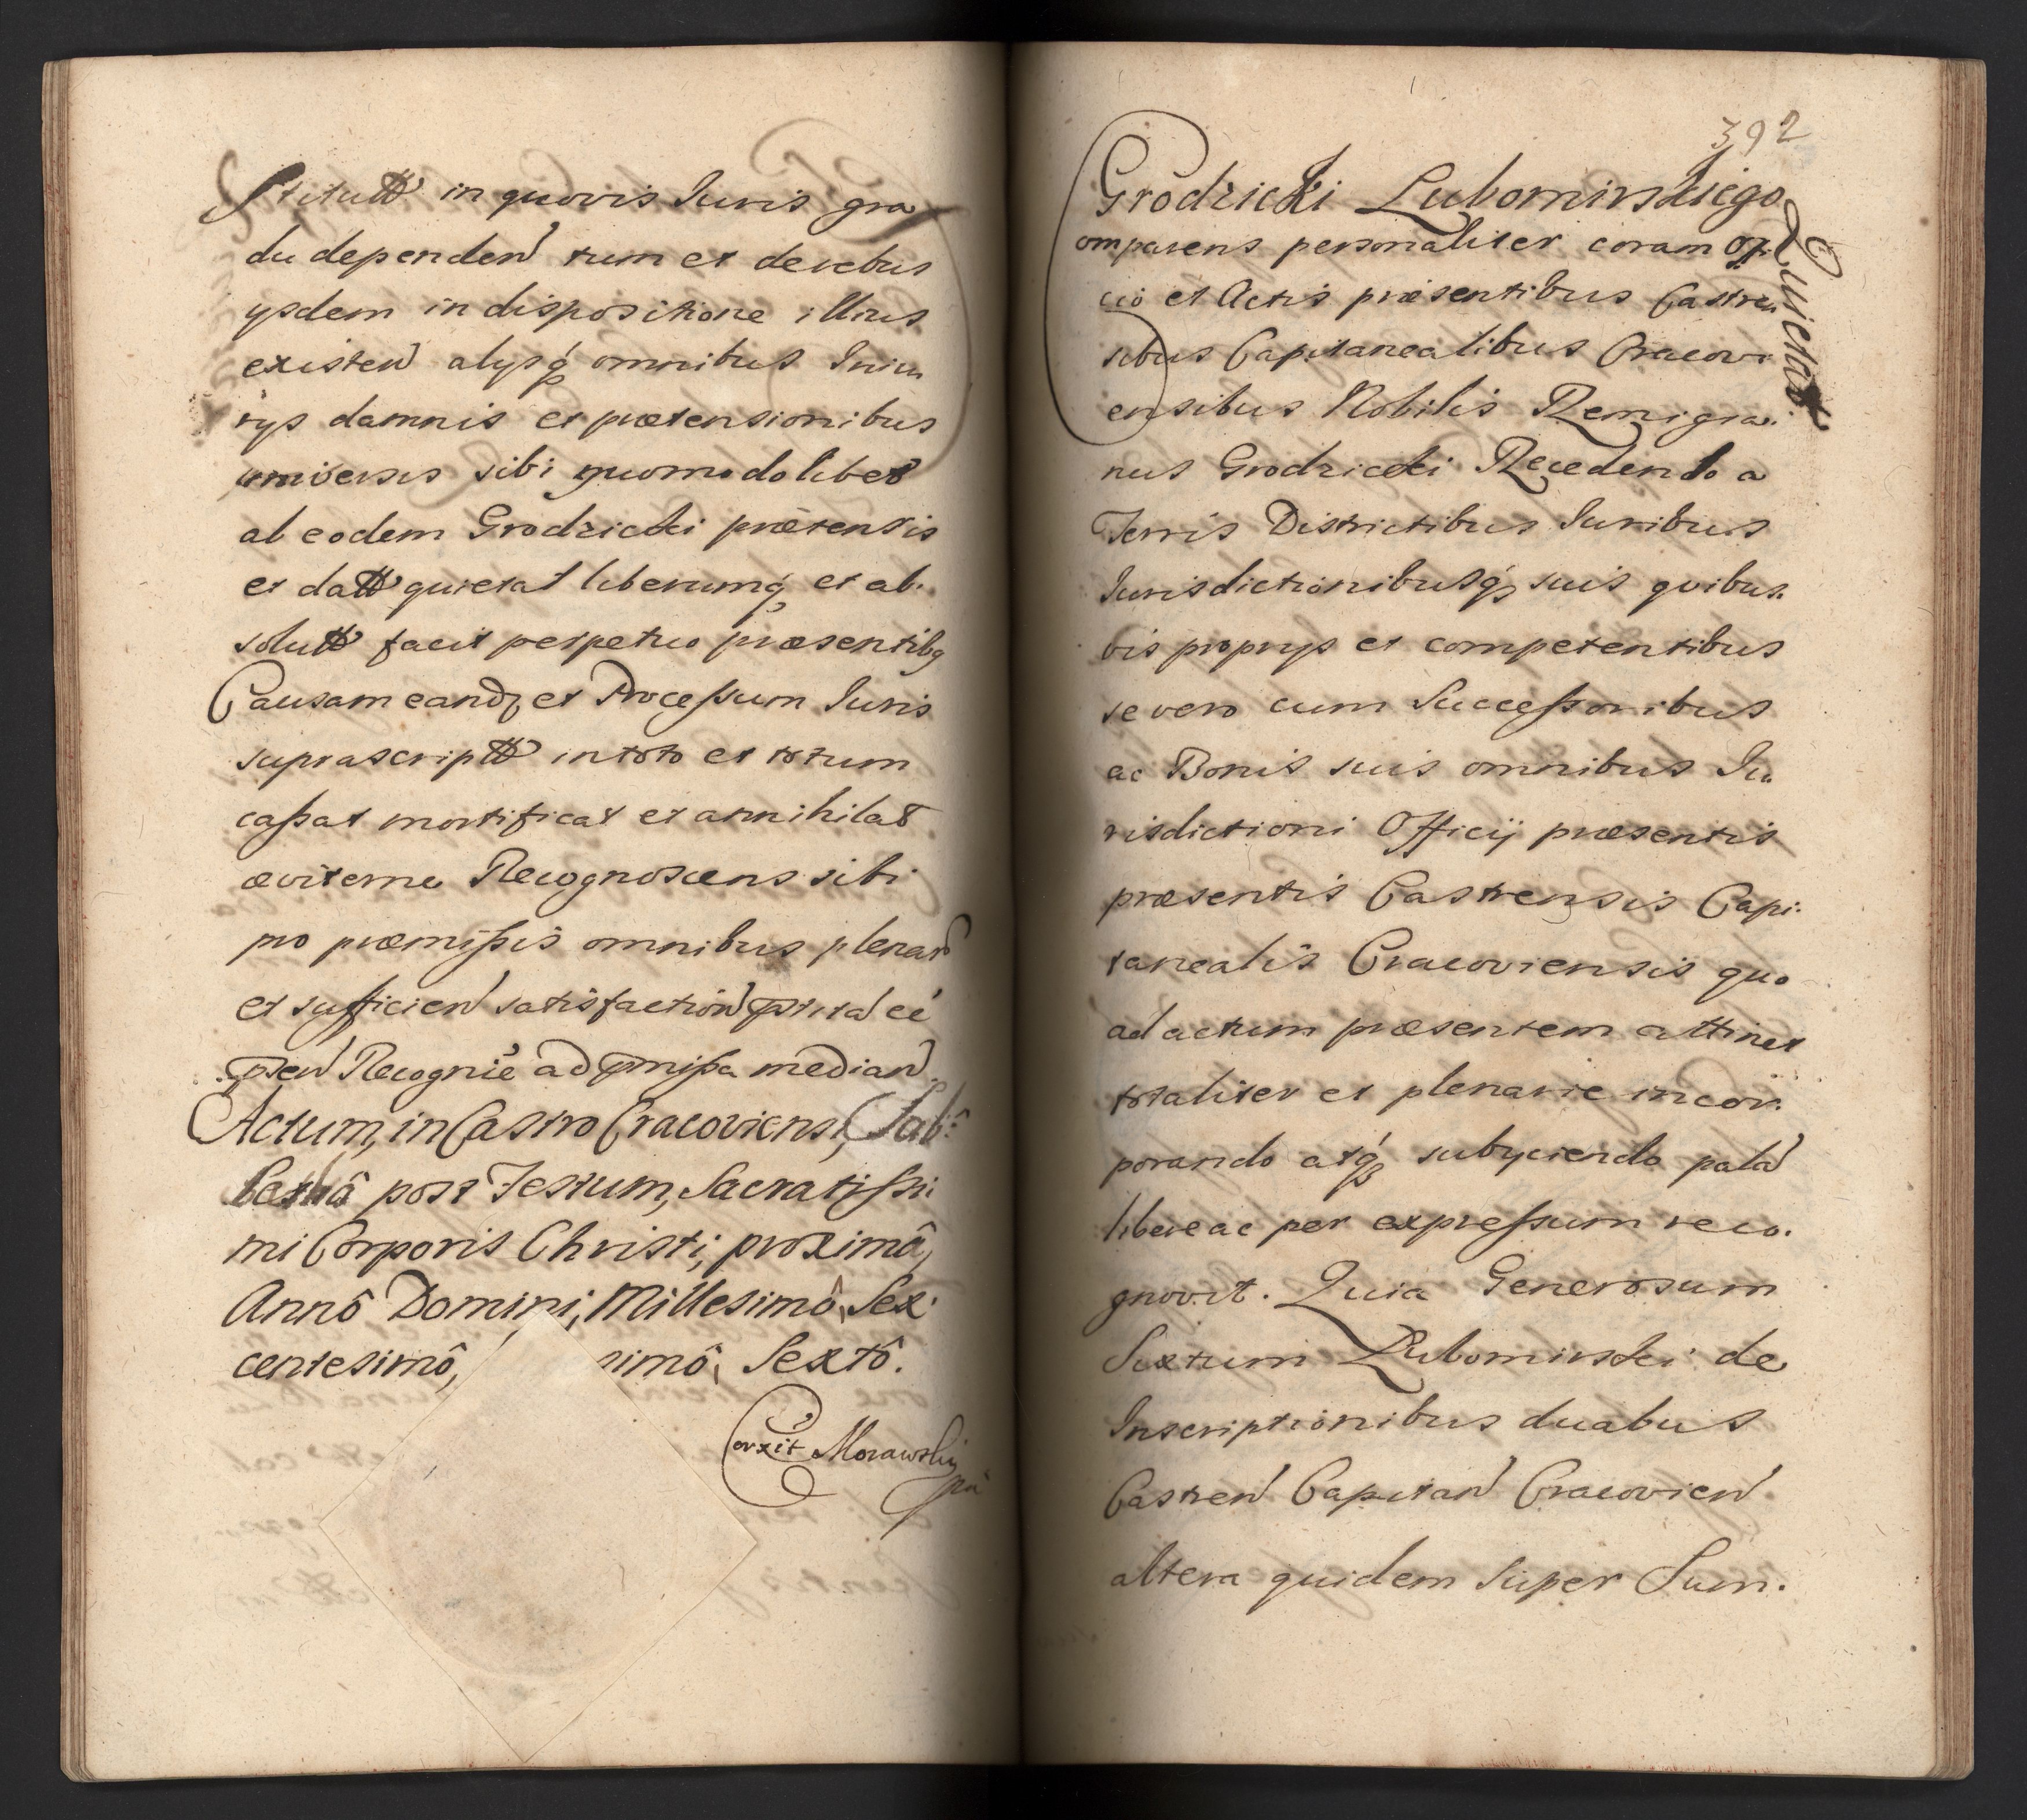 Stitutt in quovis Iuris gra
du dependen tum et de rebus
ysdem in dispositione illius
existen alysq omnibus Iniu
rys damnis et prætensionibus
universis sibi quomodolibet
ab eodem Grodzicki prætensis
et datt quietat liberumq et ab.
solutt facit perpetuo præsentibq
Causam eandq et Processum Iuris
suprascriptt in toto et totum
cassat mortificat et annihilat
æviterne Recognoscens sibi
pro præmissis omnibus plenar
et sufficien satisfaction
Recogniē ad pmissa median
Actum, in Castro Cracoviensi, Sab:
bathô post Festum, Sacratissi
mi Corporis Christi, proximâ,
Annô Domini, Millesimô, Sex
centesimô, simô, Sextô.
Corxit Morawsky
392
Grodzicki Lubominskiego
Quietat
Comparens personaliter coram offi
cio et Actis præsentibus Castren
sibus Capitanealibus Cracovi
ensibus Nobilis Remigia.
nus Grodzicki Recedendo a
Terris Districtibus Iuribus
Iurisdictionibusq suis quibus.
vis proprys et competentibus
se vero cum Successoribus
ac Bonis suis omnibus Iu
risdictioni Officij præsentis
præsentis Castrensis Capi.
tanealis Cracoviensis quo
ad actum præsentem attinet
totaliter et plenarie incor.
porando atq subyciendo pala
libere ac per expressum reco.
gnovit. Quia Generosum
Sixtum Lubominski de
Inscriptionibus duabus
Castren Capitan Cracovien
altera quidem super Sum.